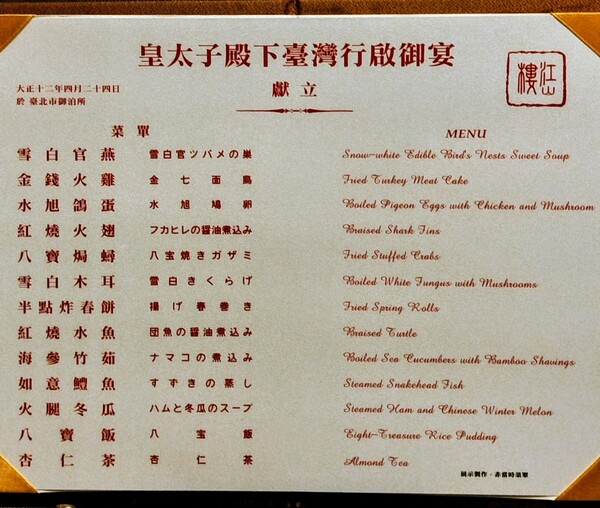 皇太子殿下臺灣行啟御宴
獻立
江山樓
大正十二年四月二十四日
於 臺北市御泊所
菜單 MENU
雪白官燕 雪白官ツバメの巣 Snow-white Edible Bird's Nests Sweet Soup
金錢火雞 金七面鳥 Fried Turkey Meat Cake
水旭鴿蛋 水旭鳩卵 Boiled Pigeon Eggs with Chicken and Mushroom
紅燒火翅 フカヒレの醤油煮込み Braised Shark Fins
八寶焗蟳 八宝焼きガザミ Fried Stuffed Crabs
雪白木耳 雪白きくらげ Boiled White Fungus with Mushrooms
半點炸春餅 揚げ春巻き Fried Spring Rolls
紅燒水魚 団魚の醤油煮込み Braised Turtle
海參竹茹 ナマコの煮込み Boiled Sea Cucumbers with Bamboo Shavings
如意鱧魚 すずきの蒸し Steamed Snakehead Fish
火腿冬瓜 ハムと冬瓜のスープ Steamed Ham and Chinese Winter Melon
八寶飯 八宝飯 Eight-Treasure Rice Pudding
杏仁茶 杏仁茶 Almond Tea
展示製作，非當時菜單